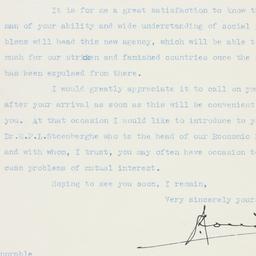 It is for me a great satisfaction to know th
man of your ability and wide understanding of social
blems will head this new agency, which will be able t
much for our stricken and famished countries once the
has been expulsed from there.
I would greatly appreciate it to call on you
after your arrival as soon as this will be convenient
you. At that occasion I would like to introduce to y
Dr.G.P.L.Steenberghe who is the head of our Economic
and with whom, I trust, you may often have occasion to
cuss problems of mutual interest.
Hoping to see you soon, I remain,
Very sincerely yours
norable